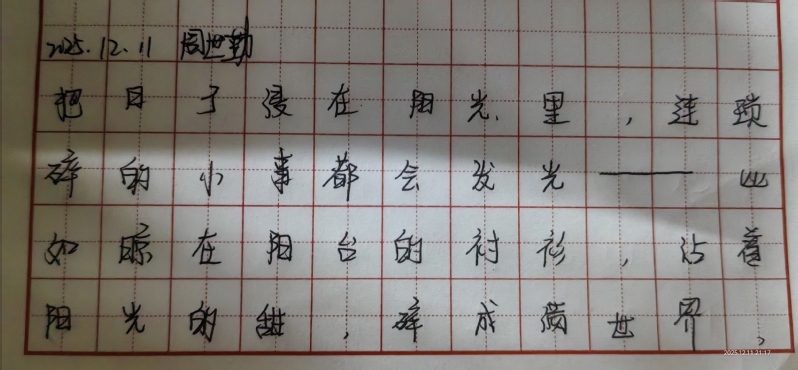 2025.12.11 周世勤
把日子浸在阳光里，连琐
碎的小事都会发光——比
如晾在阳台的衬衫，沾着
阳光的甜，碎成满世界，
2025.12.11 21:17